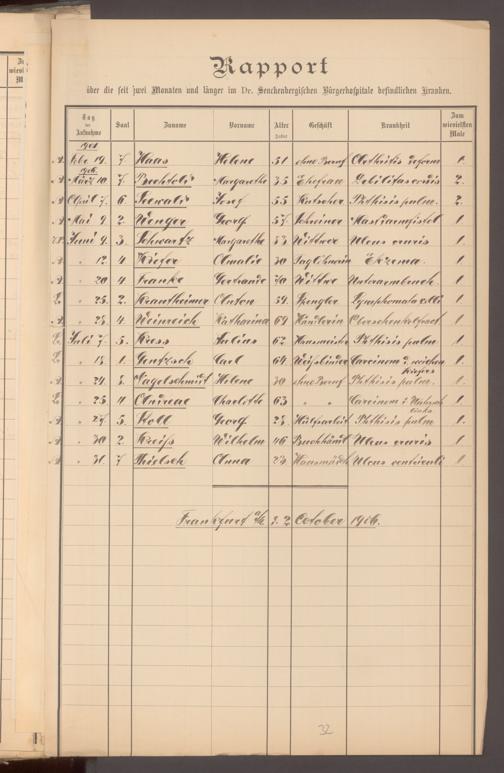 Rapport
über die seit zwei Monaten und länger im Dr. Senckenbergischen Bürgerhospitale befindlichen Kranken.
Tag der Aufnahme Saal Zuname Vorname Alter Jahre Geschäft Krankheit Zum wievielsten Male
A. 19. 7. Haas Helene 51 ohne Beruf Arthritis deform 1.
1906.
A. März 10 7. Bechtold Margarethe 35 Ehefrau Debilitas cordis 2.
A. April 7. 6 Josef 35 Kutscher Phthisis pulm. 2.
A. Mai 9. 2. Wenger Georg 57. Schreiner Mastdarmfistel 1.
Juni 9. 3. Schwartz Margarethe 53 Wittwe Ulcus cruris 1.
A. " 12 4 Kiefer Amalie 30 Taglöhnerin Ekzema. 1.
A. " 20 4 Franke Gertraude 70 Wittwe 1.
E. " 25. 2. Krantheimer Anton 59. Spengler Lymphomata colli 1.
A. " 25. 4 Weinreich Katharina 64 Händlerin 1.
E. Juli 7. 5. Kress Julius 62 Phthisis pulm. 1.
E. " 15. 1. Gentzsch Carl 64 Weißbinder Carcinom d. weichen 1.
A. " 24. 3. Nagelschmidt Helene 30 ohne Beruf Phthisis pulm. 1.
E. " 25. 4 Andreae Charlotte 63 " " Carcinom 1.
A. " 27. 5. Koll Georg 25. Phthisis pulm 1.
A. " 30 2. Kreiss Wilhelm 46 Ulcus cruris 1.
A. " 31. 7 Anna 24. Ulcus ventriculi 1.
Frankfurt a/M. d. 2. October 1906.
32